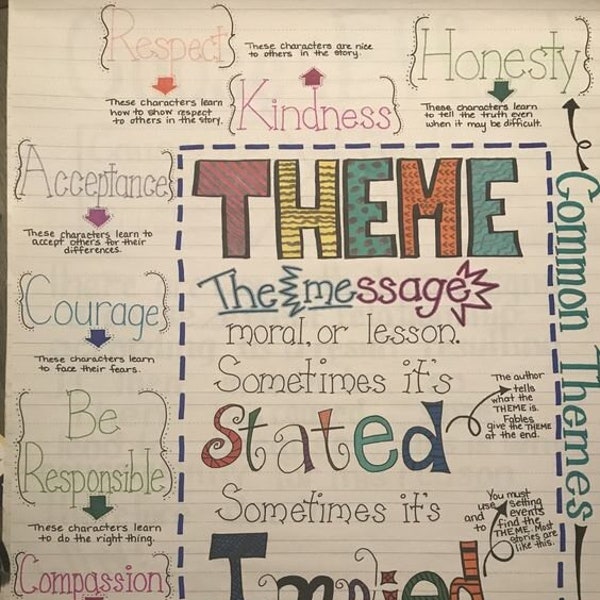 Respect
These characters learn
how to show respect
to others in the story.
These characters are nice
to others in the story.
Kindness
Honesty
These characters learn
to tell the truth even
when it may be difficult.
Common Themes
Acceptance
These characters learn to
accept others for their
differences.
Courage
These characters learn
to face their fears.
Be
Responsible
These characters learn
to do the right thing.
Compassion
THEME
The message
moral, or lesson.
Sometimes it's
Stated
The author
tells
what the
THEME is.
Fables
give the THEME
at the end.
Sometimes it's
Implied
You must
use setting
and events
to find the
THEME. Most
stories are
like this.